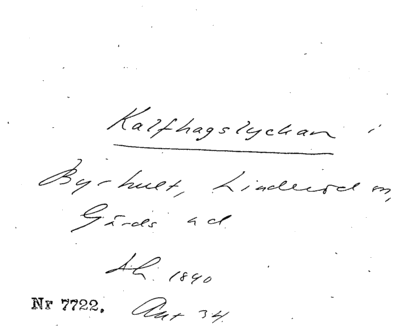 Kalfhagslyckan i
Byrhult, Linderöd sn,
Gärds hd
Ah. 1840
Nr 7722. Akt 34